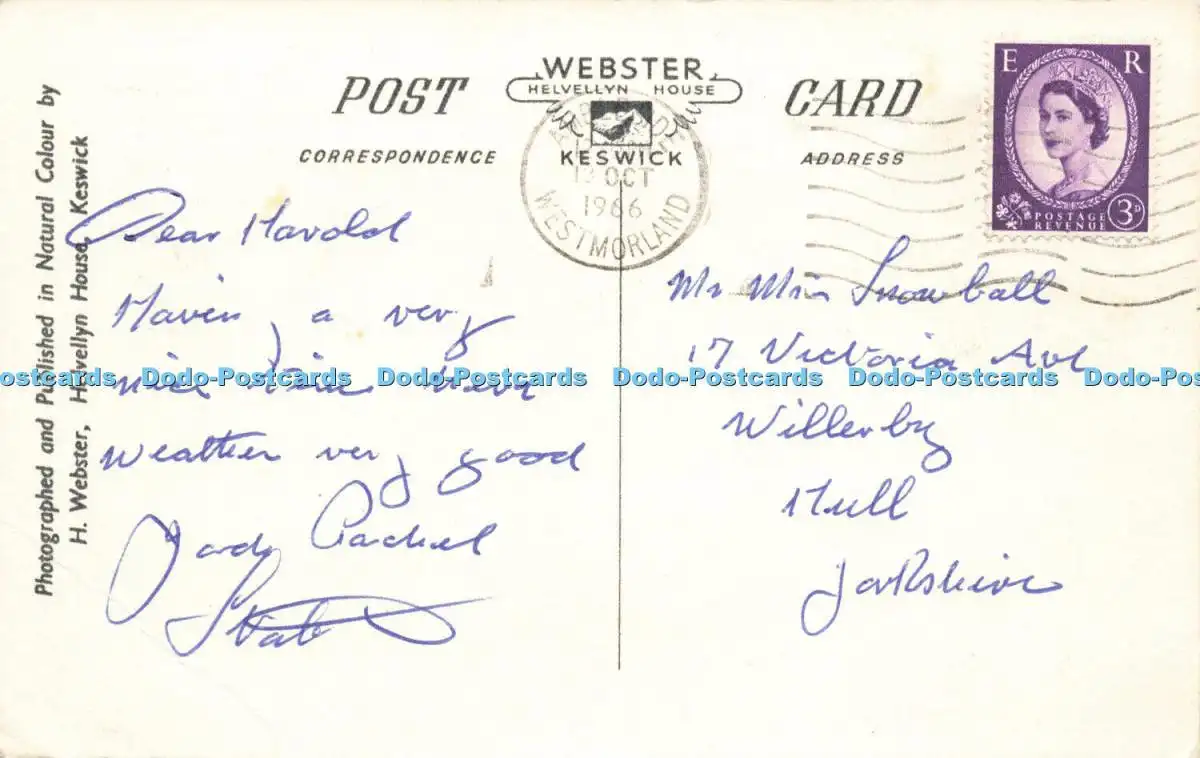 POST
WEBSTER
HELVELLYN HOUSE
KESWICK
CARD
CORRESPONDENCE
ADDRESS
12 OCT
1966
WESTMORLAND
E R
POSTAGE
REVENUE
3D
Photographed and Published in Natural Colour by
H. Webster, Helvellyn House, Keswick
Dear Harold
Having a very
nice time here
weather very good
Mr Mrs Snowball
17 Victoria Ave
Willerby
Hull
Yorkshire
Dodo-Postcards Dodo-Postcards Dodo-Postcards Dodo-Postcards